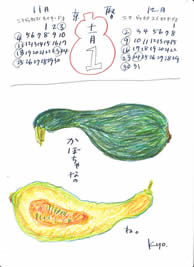 11月
1 2 3
4 5 6 7 8 9 10
11 12 13 14 15 16 17
18 19 20 21 22 23 24
25 26 27 28 29 30
十一月
1
12月
1
2 3 4 5 6 7 8
9 10 11 12 13 14 15
16 17 18 19 20 21 22
23 24 25 26 27 28 29
30 31
かぼちゃなの
ね。
Kyo.